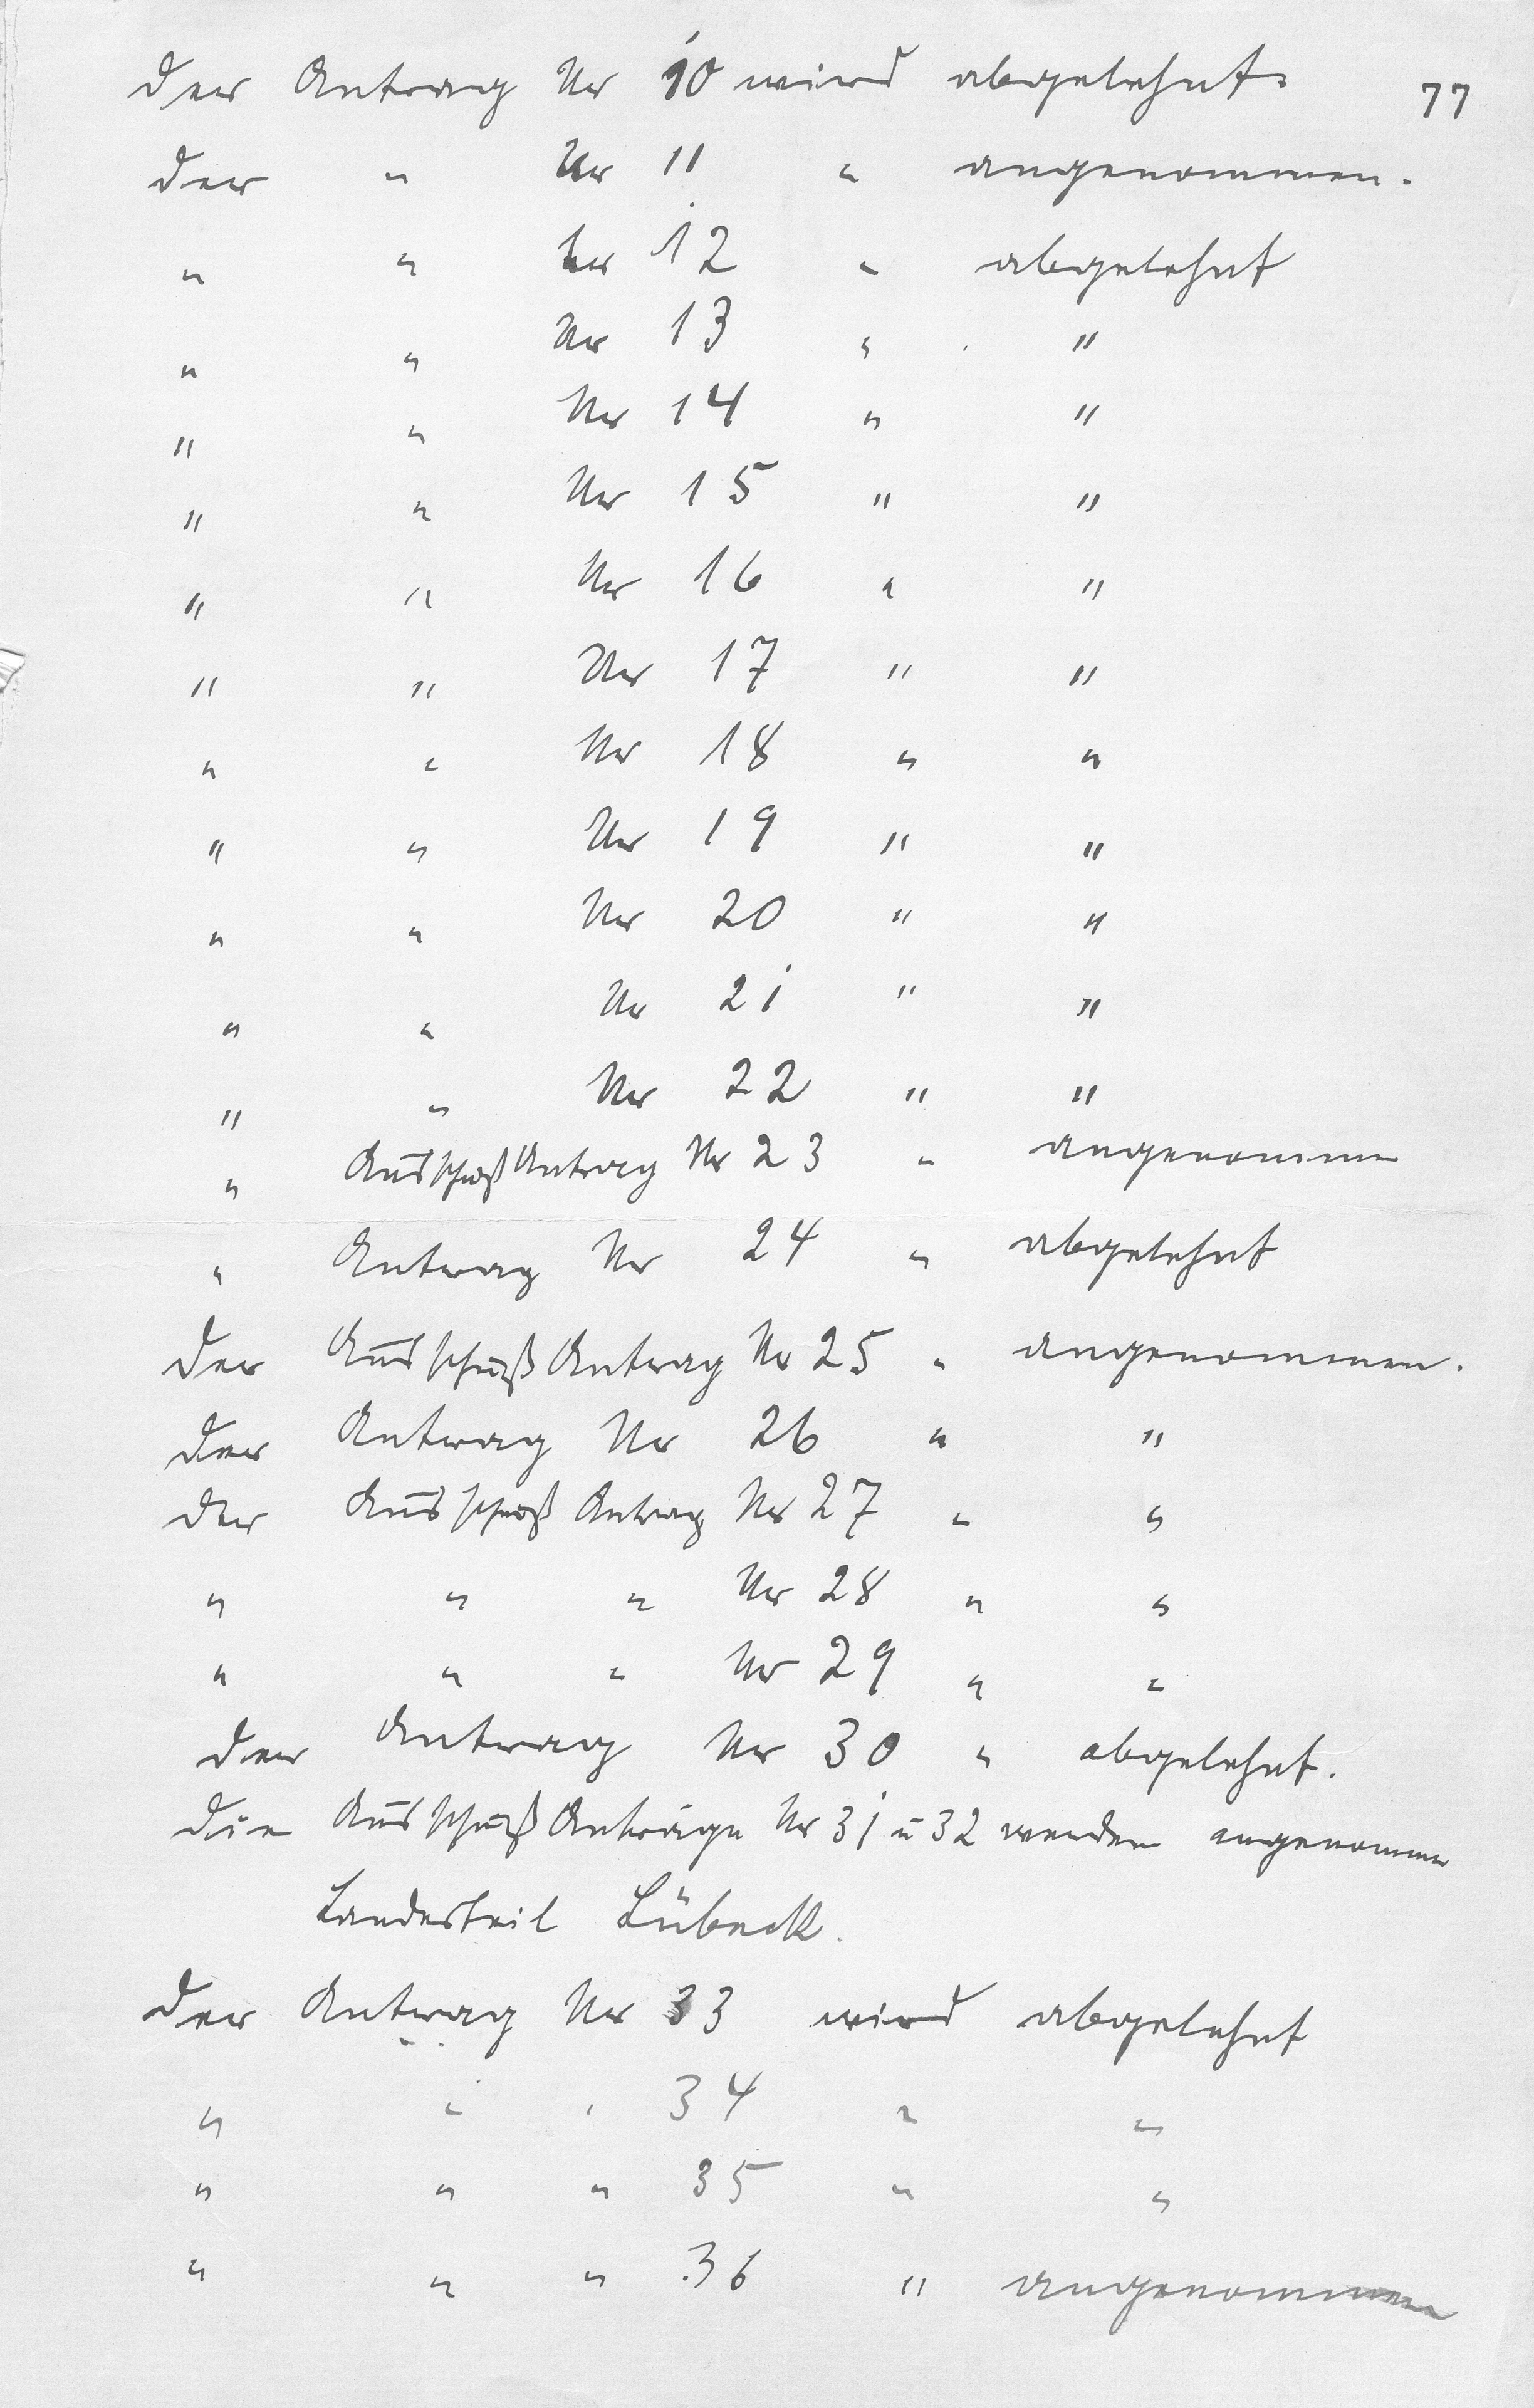 Der Antrag Nr 10 wird abgelehnt. 77
Der " Nr 11 " angenommen.
" " Nr 12 " abgelehnt
" " Nr 13 " "
" " Nr 14 " "
" " Nr 15 " "
" " Nr 16 " "
" " Nr 17 " "
" " Nr 18 " "
" " Nr 19 " "
" " Nr 20 " "
" " Nr 21 " "
" " Nr 22 " "
" Ausschuß Antrag Nr 23 " angenommen
" Antrag Nr 24 " abgelehnt
Der Ausschuß Antrag Nr 25 " angenommen.
Der Antrag Nr 26 " "
Der Ausschuß Antrag Nr 27 " "
" " " Nr 28 " "
" " " Nr 29 " "
Der Antrag Nr 30 " abgelehnt.
Die Ausschuß Anträge Nr 31 u 32 werden angenommen
Landesteil Lübeck.
Der Antrag Nr 33 wird abgelehnt
" " " 34 " "
" " " 35 " "
" " " 36 " angenommen